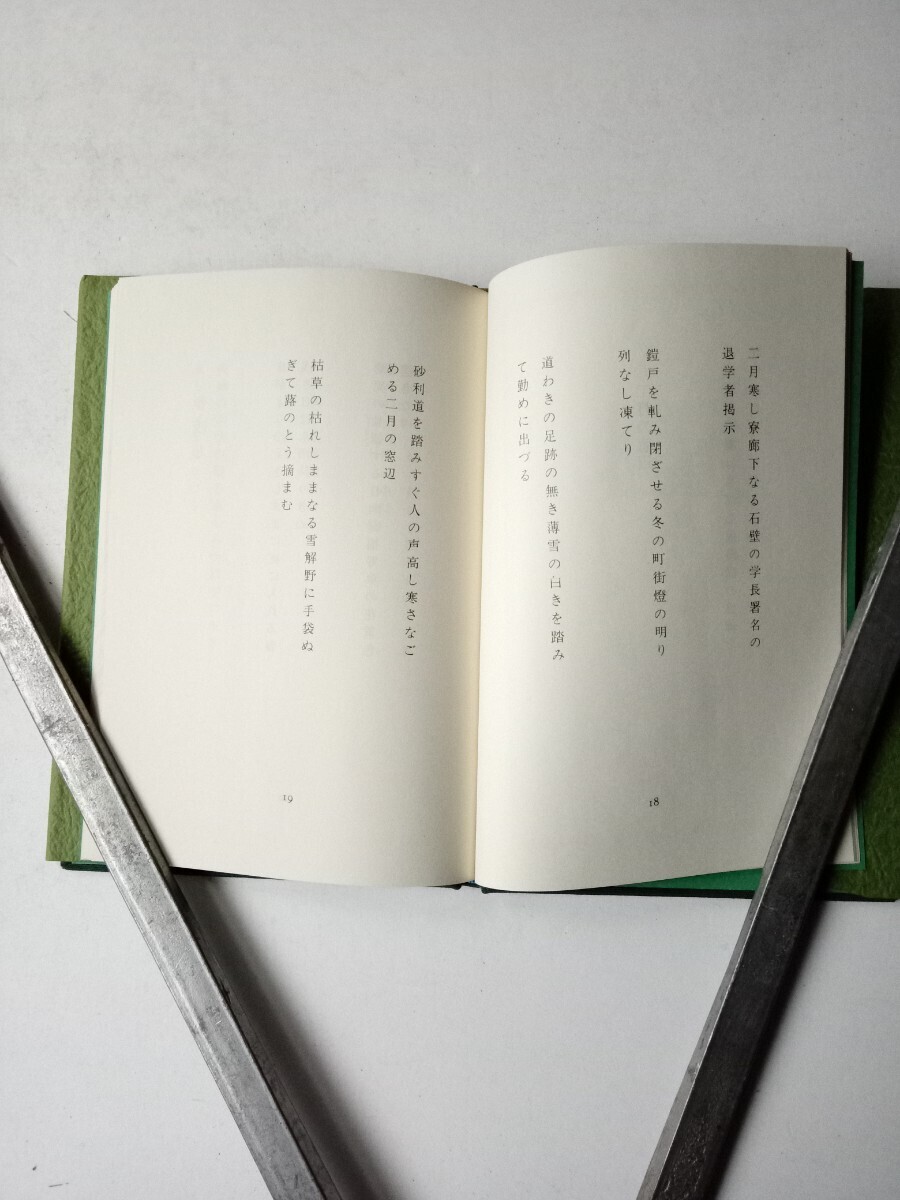 二月寒し寮廊下なる石壁の学長署名の
退学者掲示
鎧戸を軋み閉ざせる冬の町街燈の明り
列なし凍てり
道わきの足跡の無き薄雪の白きを踏み
て勤めに出づる
18
砂利道を踏みすぐ人の声高し寒さなご
める二月の窓辺
枯草の枯れしままなる雪解野に手袋ぬ
ぎて蕗のとう摘まむ
19